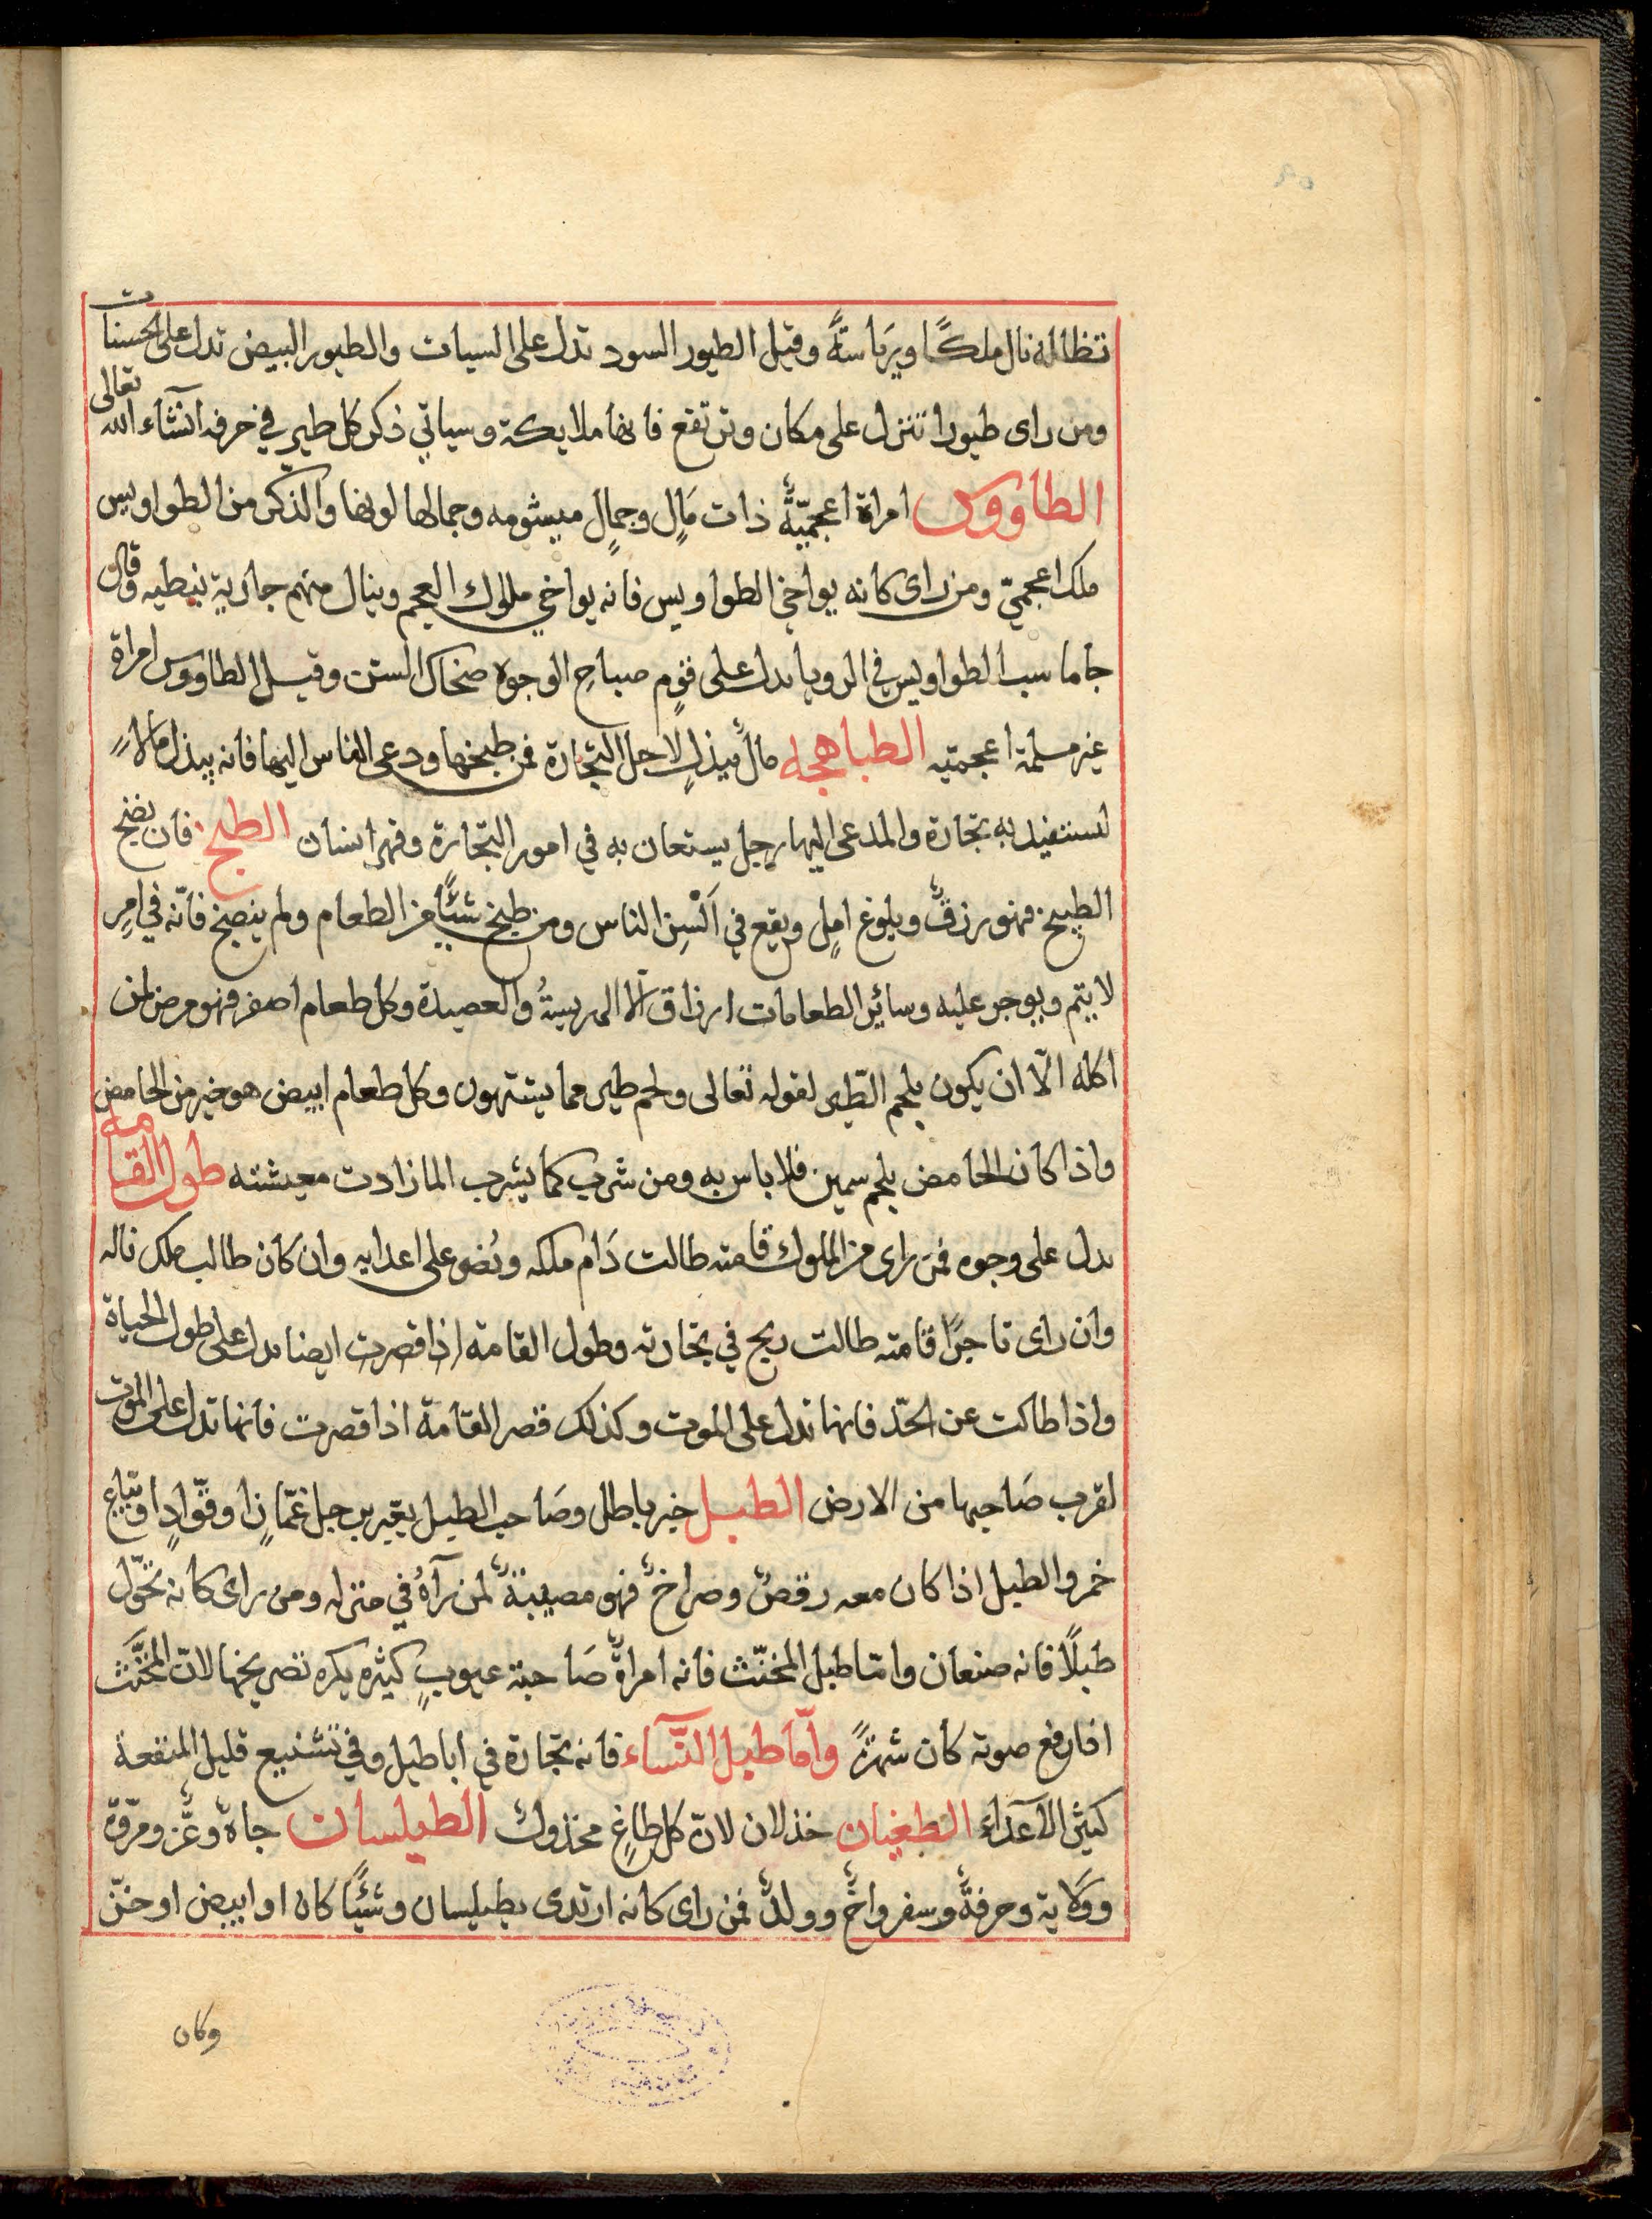 تظلله نال ملكًا ورياسةً وقيل الطيور السود تدل على السيات والطيور البيض تدل على الحسنات
ومن راى طيورا تنزل على مكان وترتفع فانها ملايكة وسياتي ذكر كل طير في حرفه انشآء الله تعالى
الطاووس امراة اعجميّةٌ ذات مَالٍ وجمالٍ ميشومه وجمالها لونها والذكر من الطواويس
ملك اعجميّ ومن راى كانه يواخي الطواويس فانه يواخي ملوك العجم وينال منهم جارية نبطيه وقال
جاماسب الطواويس في الرويا يدل على قومٍ صباحِ الوجوه ضحاك السن وقيل الطاووس امراة
غير مسلمة اعجميّه الطباهجه مالٌ يبذل لاجل التجارة فمن طبخها ودعى الناس اليها فانه يبذل مالاً
لتستفيد به تجارة والمدعى اليها رجل يستعان به في امور التجارة وقهر انسان الطبخ فان نضج
الطبيخ فهو رزقٌ وبلوغ املٍ ويقع في اَلْسِنِ الناس ومن طبخ شيًّا من الطعام ولم ينضج فانّه في امرٍ
لا يتم ويوجر عليه وسائر الطعامات ارزاق الا الهريسةُ والعصيدة وكل طعام اصفر فهو مرض لمن
اكله الّا ان يكون بلحم الطّير لقوله تعالى ولحم طير مما يشتهون وكل طعام ابيض هو خير من الحامض
واذا كان الحامض بلحم سمين فلا باس به ومن شرب كما يشرب الما زادت معيشته طول القامه
يدل على وجوه فمن راى من الملوك قامته طالت دَام ملكه ونُصر على اعدايه وان كان طالب ملك ناله
وان راى تاجرًا قامته طالت ربح في تجارته وطول القامة اذا قصرت ايضا يدل على طول الحياة
واذا طالت عن الحدّ فانها تدل على الموت وكذلك قصر القامة اذا قصرت فانها تدل على الموت
لقرب صَاحبها من الارض الطبل خبر باطل وصَاحب الطبل يعّبر برجل غمّازٍ او قوّادٍ او بتاع
خمر والطبل اذا كان معه رقصٌ وصراخٌ فهو مصيبةٌ لمن رآهُ في منزله ومن راى كانه تحوّل
طبلًا فانه صنعان وامّا طبل المخنّث فانه امراةٌ صَاحبة عيوبٍ كثيره يكره تصريحها لانّ المخنّث
اذا رفع صوته كان شهرةً وامّا طبل النسآء فانه تجارة في اباطيل وفي تشنيع قليل المنفعة
كثير الآعدآء الطغيان خذلان لانّ كل طاغٍ مخذول الطيلسان جاهٌ وعّزٌ ومروّة
ووَلاية وحرفةٌ وسفر واخٌ وولدٌ فمن راى كانه ارتدى بطيلسان وشيًّا كان او ابيض او خزّ
وكان